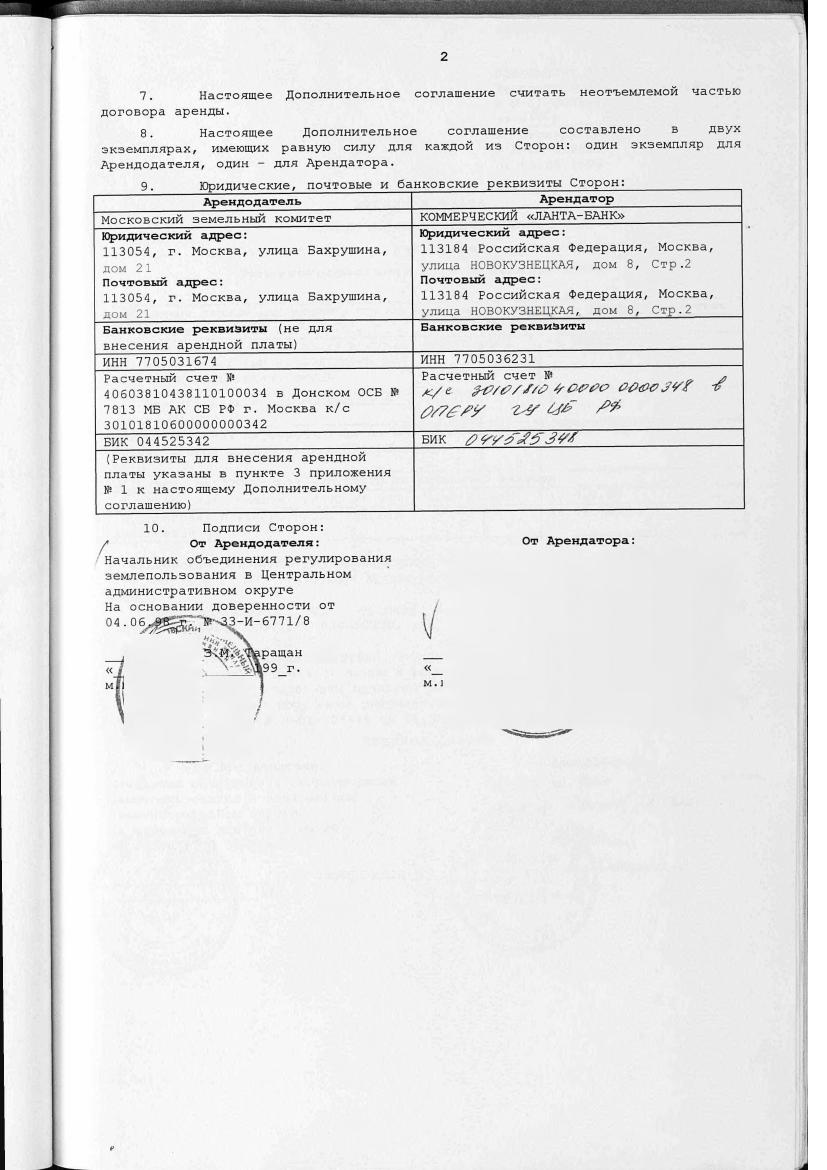 2
7. Настоящее Дополнительное соглашение считать неотъемлемой частью
договора аренды.
8. Настоящее Дополнительное соглашение составлено в двух
экземплярах, имеющих равную силу для каждой из Сторон: один экземпляр для
Арендодателя, один – для Арендатора.
9. Юридические, почтовые и банковские реквизиты Сторон:
Арендодатель
Арендатор
Московский земельный комитет
КОММЕРЧЕСКИЙ «ЛАНТА-БАНК»
Юридический адрес:
113054, г. Москва, улица Бахрушина,
дом 21
Почтовый адрес:
113054, г. Москва, улица Бахрушина,
дом 21
Юридический адрес:
113184 Российская Федерация, Москва,
улица НОВОКУЗНЕЦКАЯ, дом 8, Стр.2
Почтовый адрес:
113184 Российская Федерация, Москва,
улица НОВОКУЗНЕЦКАЯ, дом 8, Стр.2
Банковские реквизиты (не для
внесения арендной платы)
Банковские реквизиты
ИНН 7705031674
ИНН 7705036231
Расчетный счет №
40603810438110100034 в Донском ОСБ №
7813 МБ АК СБ РФ г. Москва к/с
30101810600000000342
Расчетный счет №
к/с 30101810400000000348 в
ОПЕРУ ГУ ЦБ РФ
БИК 044525342
БИК 044525348
(Реквизиты для внесения арендной
платы указаны в пункте 3 приложения
№ 1 к настоящему Дополнительному
соглашению)
10. Подписи Сторон:
От Арендодателя:
Начальник объединения регулирования
землепользования в Центральном
административном округе
На основании доверенности от
04.06.98 г. № 33-И-6771/8
З.М. Таращан
«_ 199_г.
м.
От Арендатора:
«_
м.